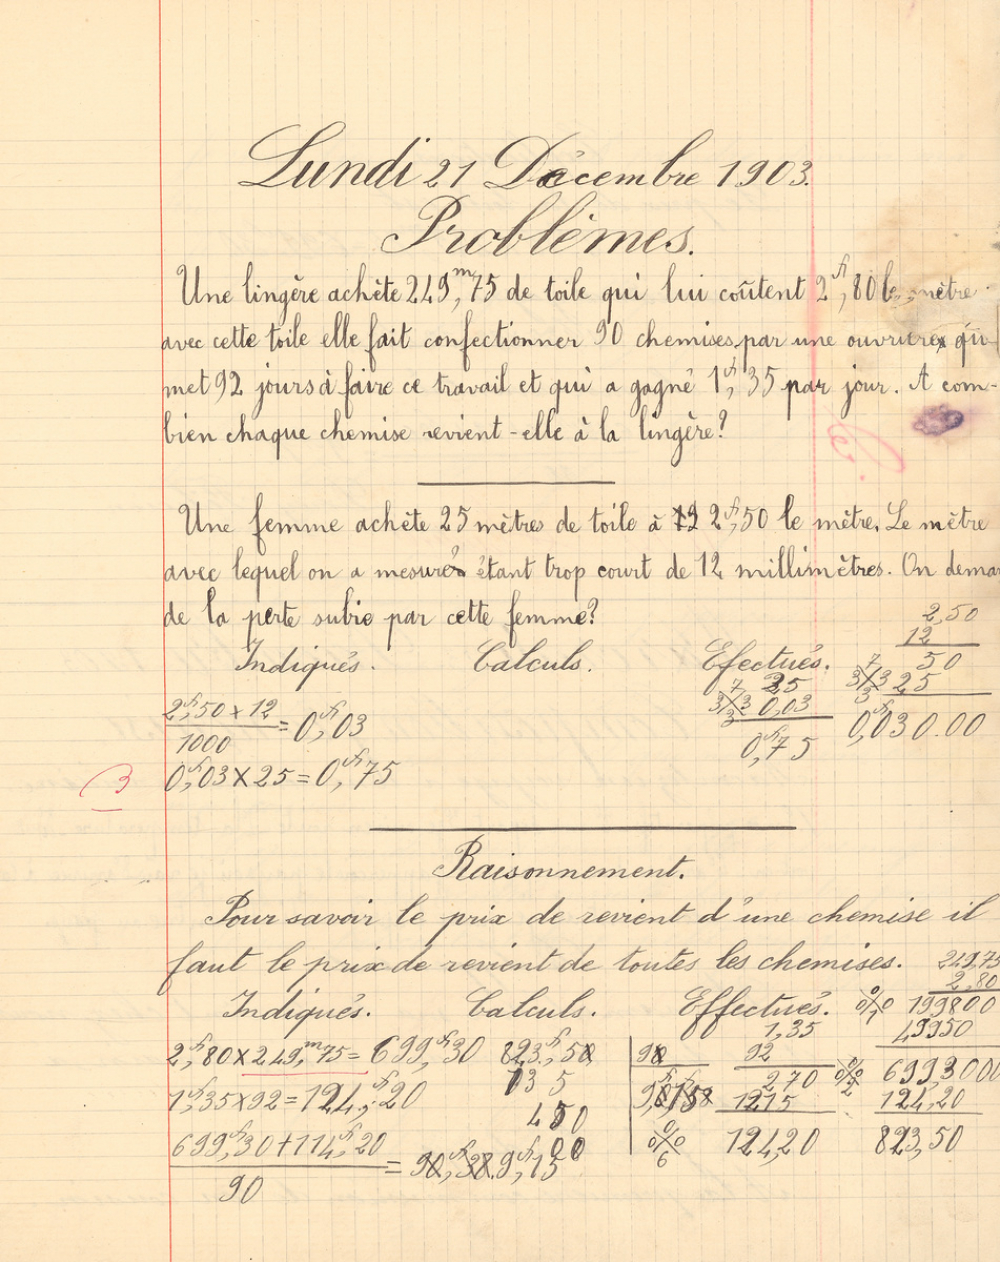 Lundi 21 Décembre 1903.
Problèmes.
Une lingère achète 249,m75 de toile qui lui coûtent 2f,80 le mètre
avec cette toile elle fait confectionner 90 chemises par une ouvrière qui
met 92 jours à faire ce travail et qui a gagné 1f,35 par jour. A com-
bien chaque chemise revient-elle à la lingère?
Une femme achète 25 mètres de toile à 2f,50 le mètre. Le mètre
avec lequel on a mesuré étant trop court de 12 millimètres. On deman
de la perte subie par cette femme?
Indiqués. Calculs. Efectués.
2,50
12
50
25
0f,030.00
7
3 3
3
25
0,03
0f,75
7
3 3
3
2f,50 x 12 / 1000 = 0f,03
0f,03 x 25 = 0f,75
3
Raisonnement.
Pour savoir le prix de revient d'une chemise il
faut le prix de revient de toutes les chemises.
Indiqués. Calculs. Effectués.
249,75
2,80
199800
49950
699,3000
124,20
823,50
2f,80 x 249,m75 = 699f,30
1f,35 x 92 = 124,f20
699f,30 + 114f,20 / 90 = 9f,15
823f,50
13 5
4 50
00
90
1,35
92
270
1215
124,20